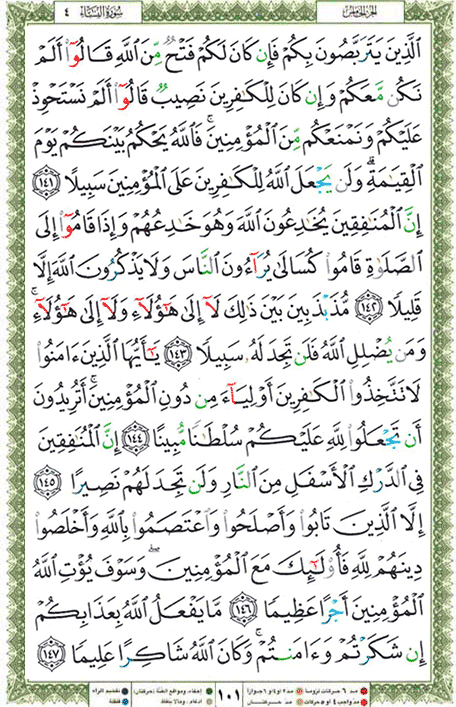 الجزء الخامس
سورة النساء ٤
ٱلَّذِينَ يَتَرَبَّصُونَ بِكُمْ فَإِن كَانَ لَكُمْ فَتْحٌ مِّنَ ٱللَّهِ قَالُوٓا۟ أَلَمْ
نَكُن مَّعَكُمْ وَإِن كَانَ لِلْكَـٰفِرِينَ نَصِيبٌ قَالُوٓا۟ أَلَمْ نَسْتَحْوِذْ
عَلَيْكُمْ وَنَمْنَعْكُم مِّنَ ٱلْمُؤْمِنِينَ ۚ فَٱللَّهُ يَحْكُمُ بَيْنَكُمْ يَوْمَ
ٱلْقِيَـٰمَةِ ۗ وَلَن يَجْعَلَ ٱللَّهُ لِلْكَـٰفِرِينَ عَلَى ٱلْمُؤْمِنِينَ سَبِيلًا ١٤١
إِنَّ ٱلْمُنَـٰفِقِينَ يُخَـٰدِعُونَ ٱللَّهَ وَهُوَ خَـٰدِعُهُمْ وَإِذَا قَامُوٓا۟ إِلَى
ٱلصَّلَوٰةِ قَامُوا۟ كُسَالَىٰ يُرَآءُونَ ٱلنَّاسَ وَلَا يَذْكُرُونَ ٱللَّهَ إِلَّا
قَلِيلًا ١٤٢ مُّذَبْذَبِينَ بَيْنَ ذَٰلِكَ لَآ إِلَىٰ هَـٰٓؤُلَآءِ وَلَآ إِلَىٰ هَـٰٓؤُلَآءِ ۚ
وَمَن يُضْلِلِ ٱللَّهُ فَلَن تَجِدَ لَهُۥ سَبِيلًا ١٤٣ يَـٰٓأَيُّهَا ٱلَّذِينَ ءَامَنُوا۟
لَا تَتَّخِذُوا۟ ٱلْكَـٰفِرِينَ أَوْلِيَآءَ مِن دُونِ ٱلْمُؤْمِنِينَ ۚ أَتُرِيدُونَ
أَن تَجْعَلُوا۟ لِلَّهِ عَلَيْكُمْ سُلْطَـٰنًا مُّبِينًا ١٤٤ إِنَّ ٱلْمُنَـٰفِقِينَ
فِى ٱلدَّرْكِ ٱلْأَسْفَلِ مِنَ ٱلنَّارِ وَلَن تَجِدَ لَهُمْ نَصِيرًا ١٤٥
إِلَّا ٱلَّذِينَ تَابُوا۟ وَأَصْلَحُوا۟ وَٱعْتَصَمُوا۟ بِٱللَّهِ وَأَخْلَصُوا۟
دِينَهُمْ لِلَّهِ فَأُو۟لَـٰٓئِكَ مَعَ ٱلْمُؤْمِنِينَ ۖ وَسَوْفَ يُؤْتِ ٱللَّهُ
ٱلْمُؤْمِنِينَ أَجْرًا عَظِيمًا ١٤٦ مَّا يَفْعَلُ ٱللَّهُ بِعَذَابِكُمْ
إِن شَكَرْتُمْ وَءَامَنتُمْ ۚ وَكَانَ ٱللَّهُ شَاكِرًا عَلِيمًا ١٤٧
١٠١